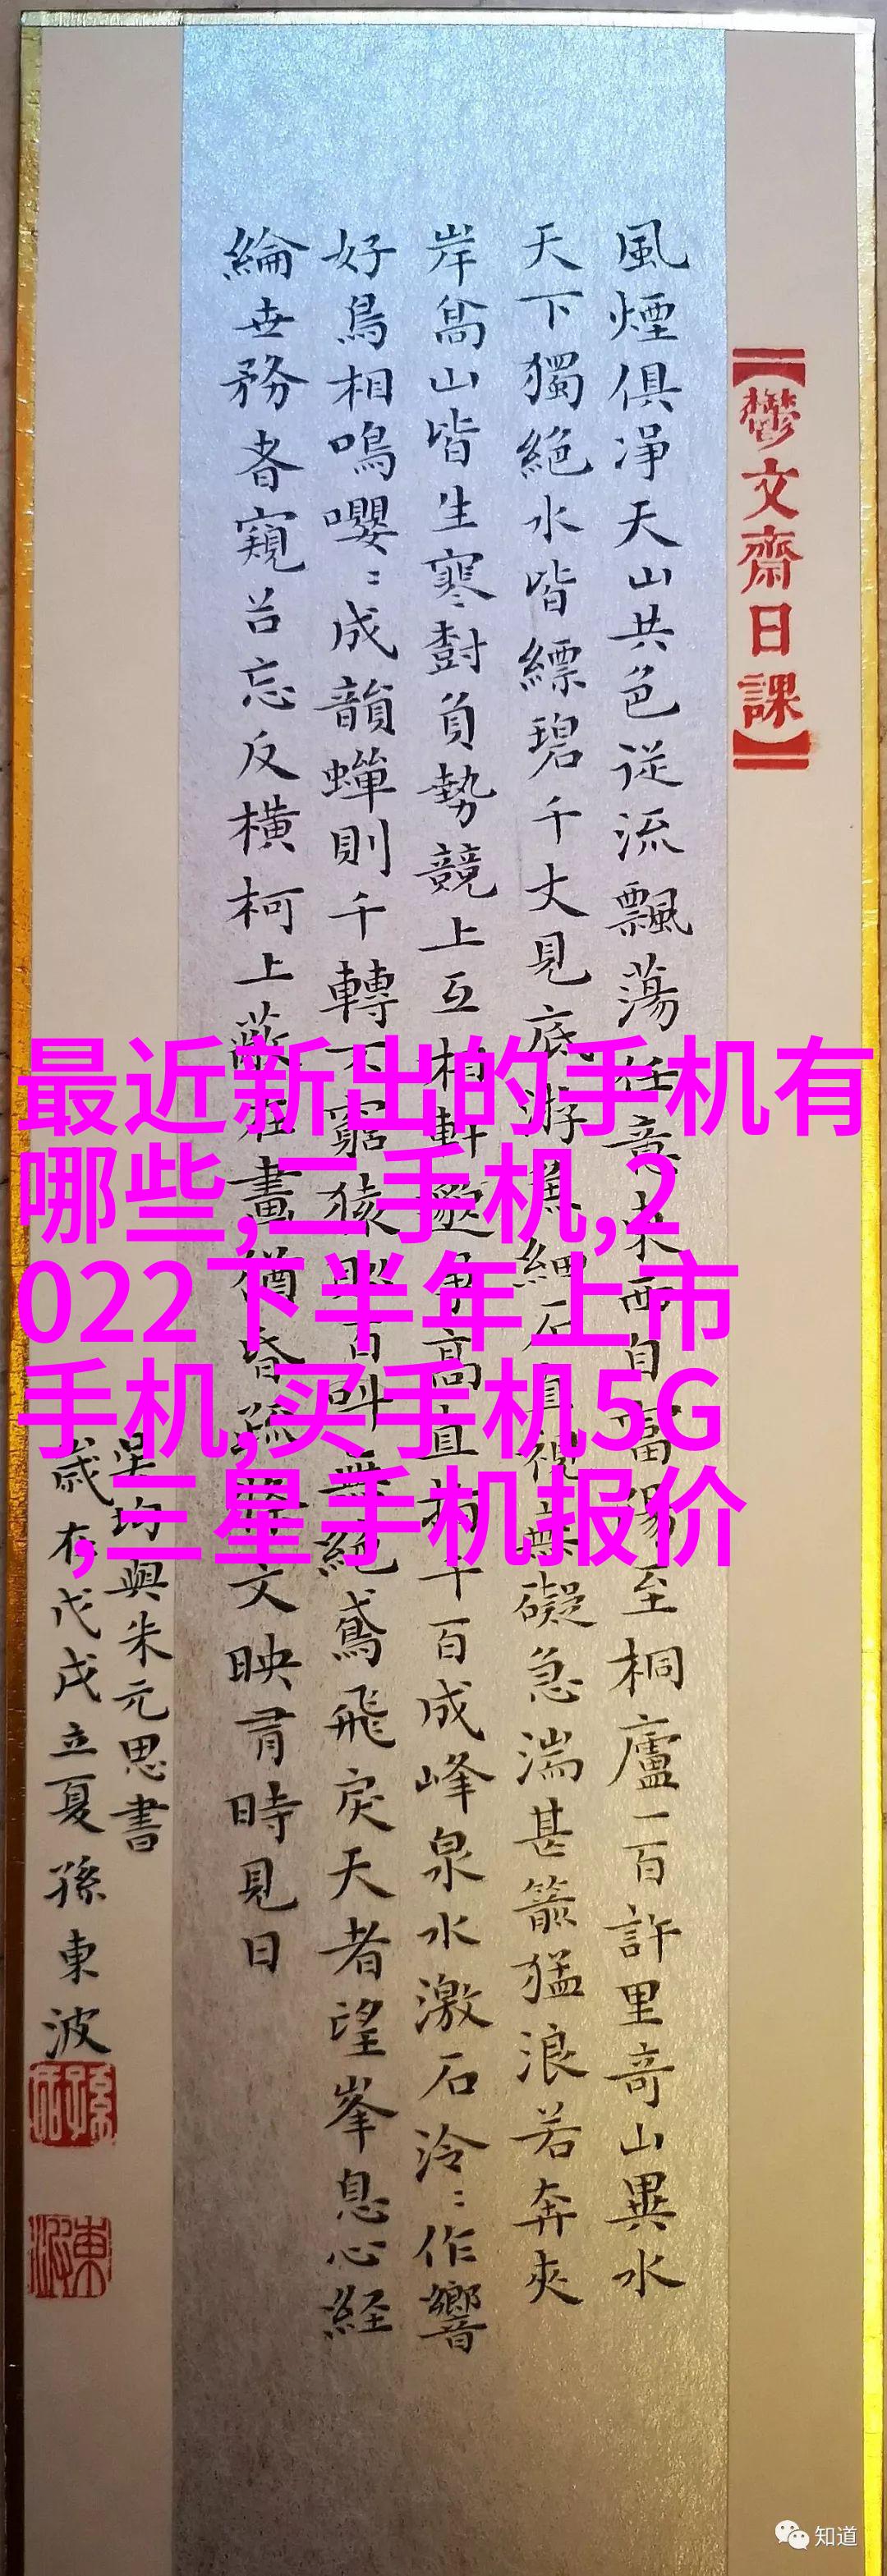 【鬱文齋日課】
風煙俱淨天山共色從流飄蕩任意東西自富陽至桐廬一百許里奇山異水
天下獨絕水皆縹碧千丈見底游魚細石直視無礙急湍甚箭猛浪若奔夾
岸高山皆生寒樹負勢競上互相軒邈爭高直指千百成峰泉水激石泠:作響
好鳥相鳴嚶:成韻蟬則千轉不窮猿則百叫無絕鳶飛戾天者望峯息心経
綸世務者窺谷忘反橫柯上蔽在晝猶昏疏條交映有時見日
吳均與朱元思書
歲在戊戌立夏孫東波
最近新出的手机有
哪些,二手机,2
022下半年上市
手机,买手机5G
,三星手机报价
知道